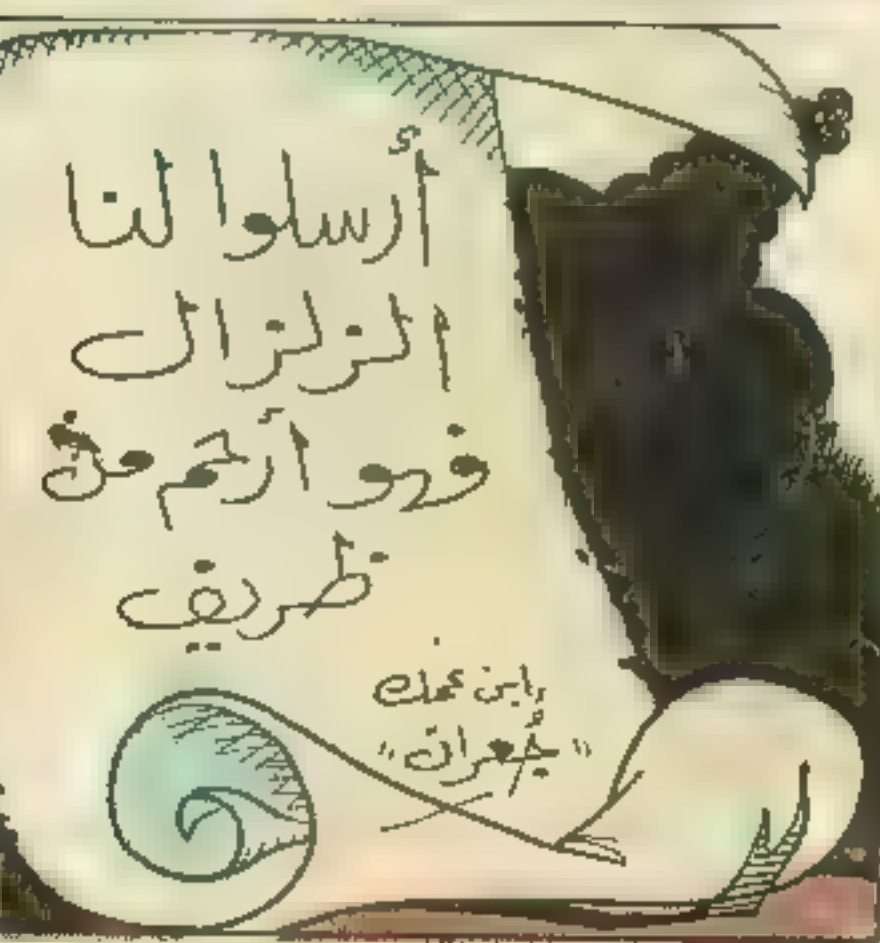 أرسلوا لنا
الزلزال
فهو أرحم من
ظريف
ابن عمك
"جعران"